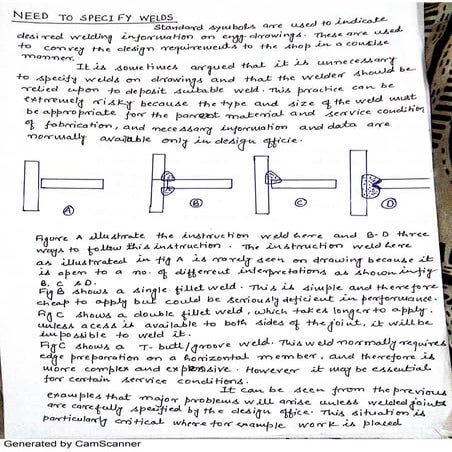 NEED TO SPECIFY WELDS
Standard symbols are used to indicate
desired welding information on engg. drawings. These are used
to convey the design requirements to the shop in a concise
manner.
It is sometimes argued that it is unnecessary
to specify welds on drawings and that the welder should be
relied upon to deposit suitable weld. This practice can be
extremely risky because the type and size of the weld must
be appropriate for the parent material and service condition
of fabrication, and necessary information and data are
normally available only in design office.
A B C D
Figure A illustrate the instruction weld here and B-D three
ways to follow this instruction. The instruction weld here
as illustrated in fig A is rarely seen on drawing because it
is open to a no. of different interpretations as shown in fig
B, C & D.
Fig B shows a single fillet weld. This is simple and therefore
cheap to apply but could be seriously deficient in performance.
Fig C shows a double fillet weld, which takes longer to apply.
unless acess is available to both sides of the joint, it will be
impossible to weld it.
Fig C shows a T-butt/groove weld. This weld normally requires
edge preparation on a horizontal member, and therefore is
more complex and expensive. However it may be essential
for certain service conditions.
It can be seen from the previous
examples that major problems will arise unless welded joints
are carefully specified by the design office. This situation is
particularly critical where for example work is placed
Generated by CamScanner